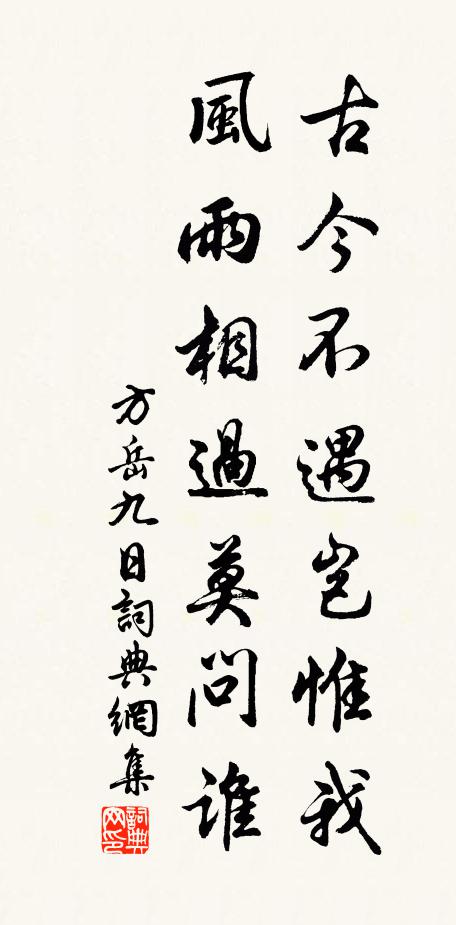 古今不遇豈惟我
風雨相過莫問誰
方岳九日詞典網集
詞典网印